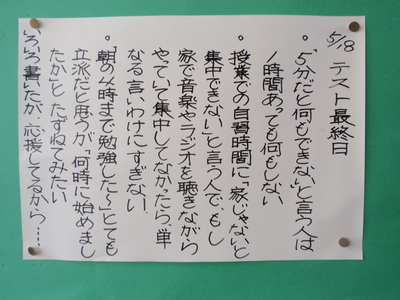 5/18 テスト最終日
。「5分だと何もできない」と言う人は
1時間あっても何もしない
。授業での自習時間に「家じゃないと
集中できない」と言う人で、もし
家で音楽やラジオを聴きながら
やっていて集中してなかったら、単
なる言いわけにすぎない.
。「朝の4時まで勉強した〜」とても
立派だと思うが、「何時に始めまし
たか」と たずねてみたい
いろいろ書いたが、応援してるから……